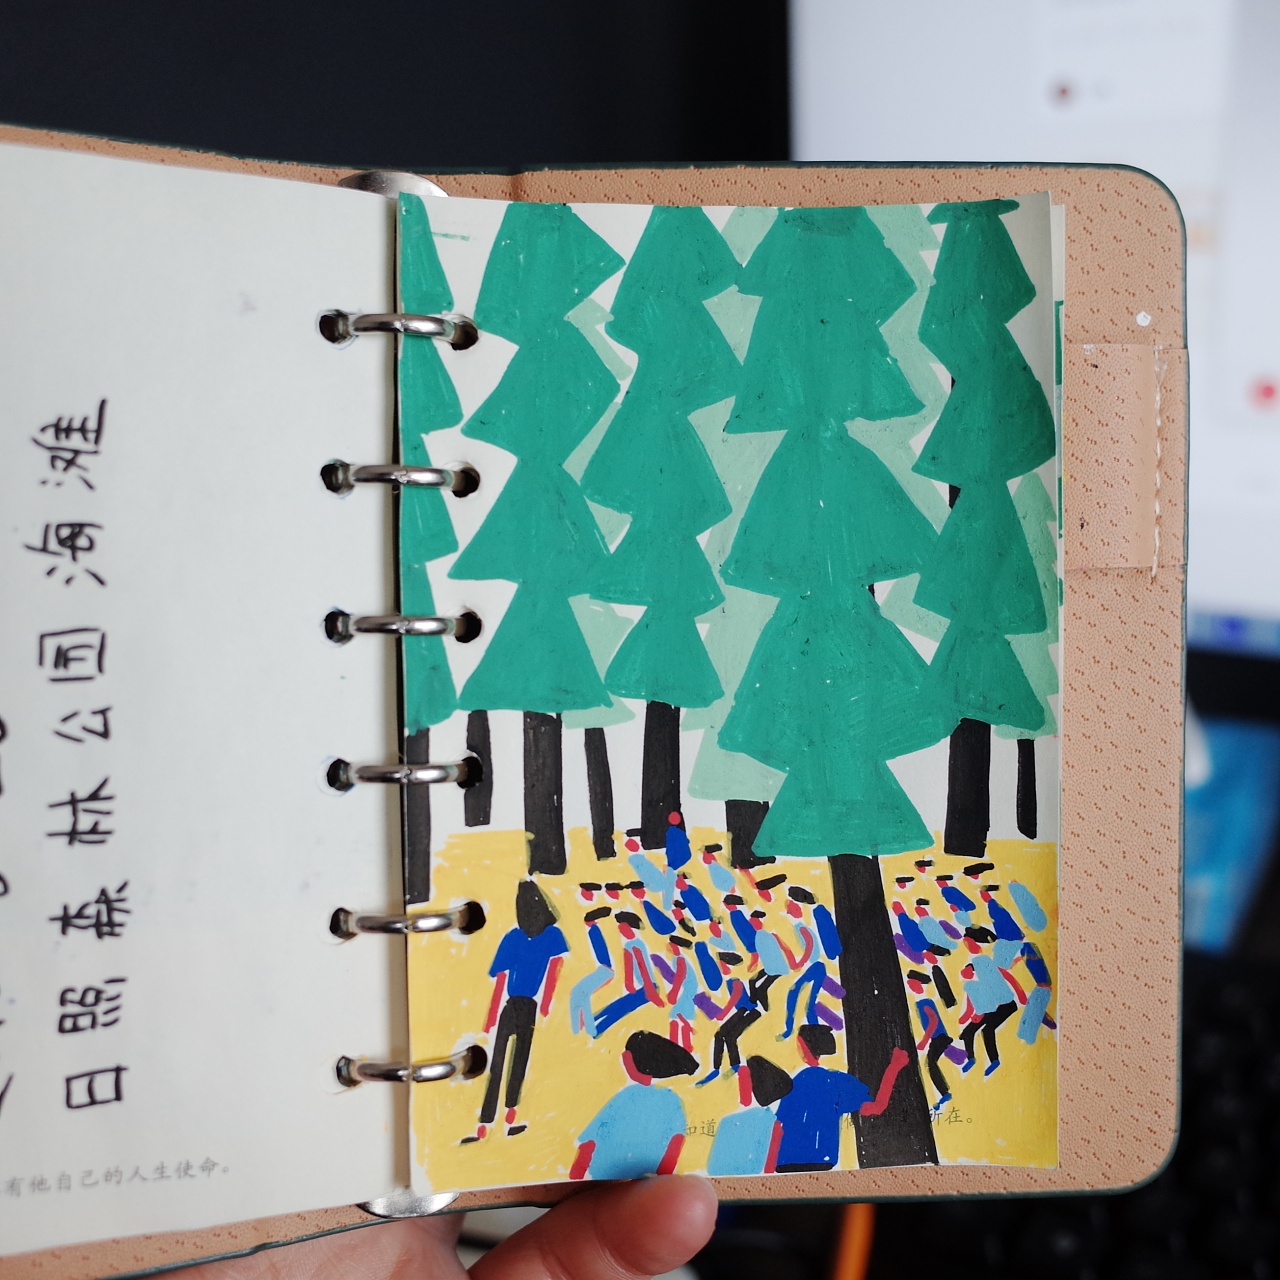 日照森林公园海滩
有他自己的人生使命。
知道
所在。